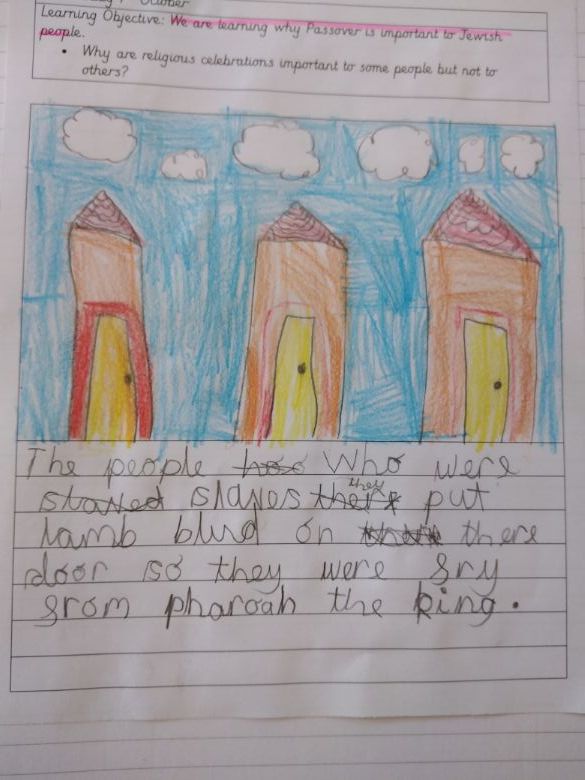 October
Learning Objective: We are learning why Passover is important to Jewish
people.
• Why are religious celebrations important to some people but not to
others?
The people who were
slaves they put
lamb blud on there
door so they were fry
from pharoah the king.